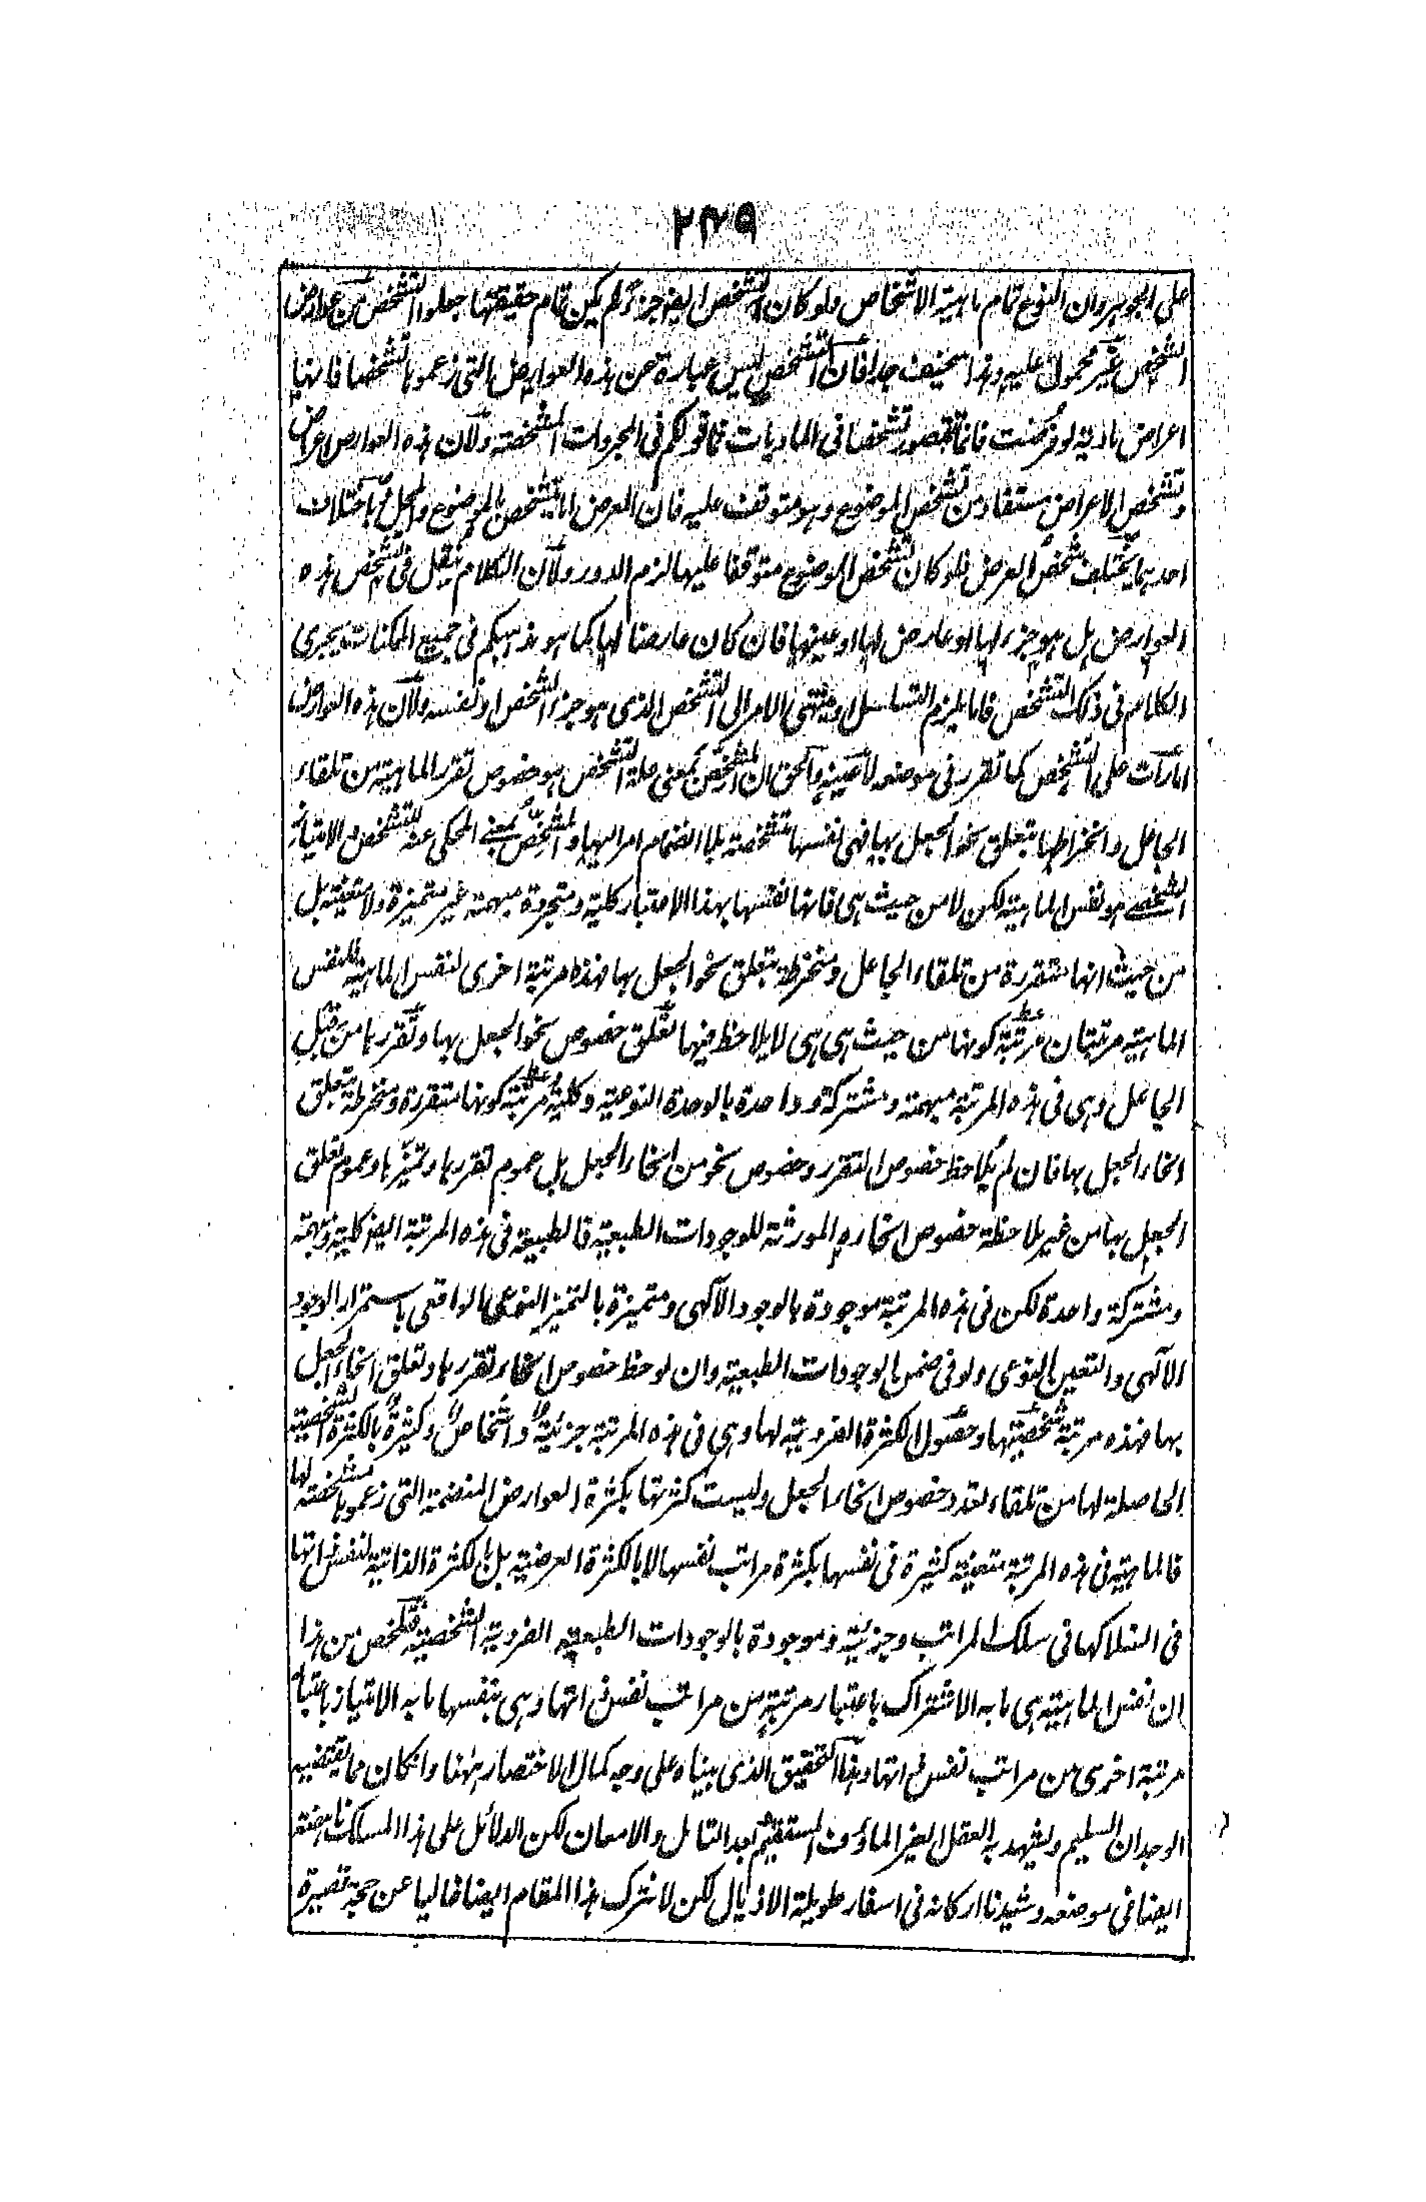 ۲۴۹
على الجوهر وان النوع تمام ماهية الاشخاص ولو كان التشخص ايضا جزءً لم يكن تمام حقيقتها جعلوا التشخص من عوارض
الشخص غير محمول عليه وهذا سخيف جدا فان التشخص ليس عبارة عن هذه العوارض التى زعموها تشخصا فانها
اعراض مادية لو فرضت فانما تتصور تشخصا فى الماديات فما قولكم فى المجردات المشخصة ولان هذه العوارض اعراض
وتشخص الاعراض مستفاد من تشخص الموضوع وهو متوقف عليه فان العرض انما يتشخص بالموضوع والمحل باختلاف
احدهما يختلف تشخص العرض فلو كان تشخص الموضوع متوقفا عليها لزم الدور ولان الكلام ينقل فى تشخص هذه
العوارض بل هو جزء لها او عارض لها او عينها فان كان عارضا لها كما هو مذهبكم فى جميع الممكنات يجرى
الكلام فى ذلك التشخص فاما يلزم التسلسل او ينتهى الامر الى التشخص الذى هو جزء الشخص او نفسه ولان هذه العوارض
امارات على التشخص كما تقرر فى موضعه لا عينه والحق ان المشخص بمعنى علة التشخص هو خصوص تقرر الماهية من تلقاء
الجاعل وانخراطها بتعلق نحو الجعل بها فهى نفسها متشخصة بلا انضمام امر اليها والمشخص بمعنى المحكى عنه للتشخص والامتياز
الشخصى هو نفس الماهية لكن لا من حيث هى فانها نفسها بهذا الاعتبار كلية ومتجردة مبهمة غير متميزة ولا متعينة بل
من حيث انها متقررة من تلقاء الجاعل ومنخرطة بتعلق نحو الجعل بها فهذه مرتبة اخرى لنفس الماهية فلنفس
الماهية مرتبتان مرتبة كونها من حيث هى هى لا يلاحظ فيها تعلق خصوص نحو الجعل بها وتقررها من قبل
الجاعل وهى فى هذه المرتبة مبهمة ومشتركة وواحدة بالوحدة النوعية وكلية ومرتبة كونها متقررة ومنخرطة بتعلق
انحاء الجعل بها فان لم يلاحظ خصوص التقرر وخصوص نحو من انحاء الجعل بل عموم تقررها وتميزها وعموم تعلق
الجعل بها من غير ملاحظة خصوص انحاءه المورثة للوجودات الطبعية فالطبيعة فى هذه المرتبة ايضا كلية ومبهمة
ومشتركة واحدة لكن فى هذه المرتبة موجودة بالوجود الآلهى ومتميزة بالتميز النوعى الواقعى باستمرار الوجود
الآلهى والتعين النوعى ولو فى ضمن الوجودات الطبعية وان لوحظ خصوص انحاء تقررها وتعلق انحاء الجعل
بها فهذه مرتبة شخصيتها وحصول الكثرة الفردية لها وهى فى هذه المرتبة جزئية واشخاص وكثيرة بالكثرة الشخصية
الحاصلة لها من تلقاء تعدد خصوص انحاء الجعل وليست كثرتها بكثرة العوارض المنضمة التى زعموها مشخصة لها
فالماهية فى هذه المرتبة متعينة كثيرة فى نفسها بكثرة مراتب نفسها لا بالكثرة العرضية بل بالكثرة الذاتية لنفس ذاتها
فى انسلاكها فى سلك المراتب وجزئية وموجودة بالوجودات الطبعية الفردية الشخصية فتلخص من هذا
ان نفس الماهية هى ما به الاشتراك باعتبار مرتبة من مراتب نفس ذاتها وهى بنفسها ما به الامتياز باعتبار
مرتبة اخرى من مراتب نفس ذاتها وهذا التحقيق الذى بيناه على وجه كمال الاختصار ههنا وان كان مما يقتضيه
الوجدان السليم ويشهد به العقل الغير الماؤف المستقيم بعد التامل والامعان لكن الدلائل على هذا المسلك ناهضة
ايضا فى موضعه وشيدنا اركانه فى اسفار طويلة الاذيال لكن لا نترك هذا المقام ايضا خاليا عن حجة قصيرة